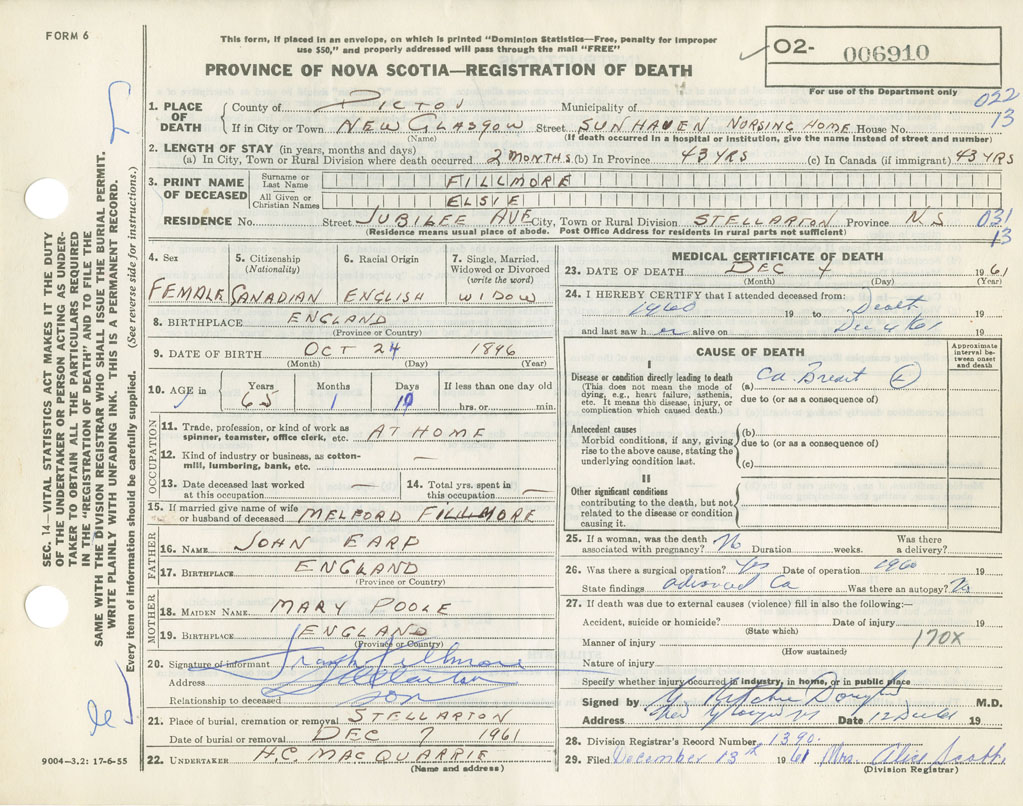 FORM 6
This form, if placed in an envelope, on which is printed "Dominion Statistics—Free, penalty for improper
use $50," and properly addressed will pass through the mail "FREE"
PROVINCE OF NOVA SCOTIA—REGISTRATION OF DEATH
O2- 006910
For use of the Department only
022
13
1. PLACE OF DEATH
County of PICTOU Municipality of
If in City or Town NEW GLASGOW Street SUNHAVEN NORSING HOME House No.
(Name) (If death occurred in a hospital or institution, give the name instead of street and number)
2. LENGTH OF STAY (in years, months and days)
(a) In City, Town or Rural Division where death occurred 2 MONTHS (b) In Province 43 YRS (c) In Canada (if immigrant) 43 YRS
3. PRINT NAME OF DECEASED
Surname or Last Name FILLMORE
All Given or Christian Names ELSIE
RESIDENCE No. Street JUBILEE AVE City, Town or Rural Division STELLARTON Province N.S
(Residence means usual place of abode. Post Office Address for residents in rural parts not sufficient)
031
13
4. Sex
FEMALE
5. Citizenship (Nationality)
CANADIAN
6. Racial Origin
ENGLISH
7. Single, Married, Widowed or Divorced (write the word)
WIDOW
8. BIRTHPLACE ENGLAND
(Province or Country)
9. DATE OF BIRTH OCT 24 1896
(Month) (Day) (Year)
10. AGE in Years Months Days If less than one day old
65 1 hrs. or min.
OCCUPATION
11. Trade, profession, or kind of work as spinner, teamster, office clerk, etc. AT HOME
12. Kind of industry or business, as cotton-mill, lumbering, bank, etc. —
13. Date deceased last worked at this occupation —
14. Total yrs. spent in this occupation —
15. If married give name of wife or husband of deceased MELFORD FILLMORE
FATHER
16. NAME JOHN EARP
17. BIRTHPLACE ENGLAND
(Province or Country)
MOTHER
18. MAIDEN NAME MARY POOLE
19. BIRTHPLACE ENGLAND
(Province or Country)
20. Signature of informant Frank Fillmore
Address Stellarton
Relationship to deceased son
21. Place of burial, cremation or removal STELLARTON
Date of burial or removal DEC 7 1961
22. UNDERTAKER H.C. MACQUARRIE
(Name and address)
9004—3.2: 17-6-55
MEDICAL CERTIFICATE OF DEATH
23. DATE OF DEATH DEC 4 1961
(Month) (Day) (Year)
24. I HEREBY CERTIFY that I attended deceased from:
1960 19 to Death 19
and last saw h er alive on Dec 4 /61 19
CAUSE OF DEATH
Approximate interval between onset and death
I
Disease or condition directly leading to death
(This does not mean the mode of dying, e.g., heart failure, asthenia, etc. It means the disease, injury, or complication which caused death.)
(a) Ca. Breast (L)
due to (or as a consequence of)
Antecedent causes
Morbid conditions, if any, giving rise to the above cause, stating the underlying condition last.
(b)
due to (or as a consequence of)
(c)
II
Other significant conditions
contributing to the death, but not related to the disease or condition causing it.
25. If a woman, was the death associated with pregnancy? No Duration weeks. Was there a delivery?
26. Was there a surgical operation? Yes Date of operation 1960 19
State findings advanced Ca Was there an autopsy? No
27. If death was due to external causes (violence) fill in also the following:—
Accident, suicide or homicide? Date of injury 19
(State which)
Manner of injury 170X
(How sustained)
Nature of injury
Specify whether injury occurred in industry, in home, or in public place
Signed by M.D.
Address New Glasgow NS Date 12 Dec 61 19
28. Division Registrar's Record Number 1390.
29. Filed December 13th 1961 Mrs. Alice Scott.
(Division Registrar)
SEC. 14—VITAL STATISTICS ACT MAKES IT THE DUTY
OF THE UNDERTAKER OR PERSON ACTING AS UNDER-
TAKER TO OBTAIN ALL THE PARTICULARS REQUIRED
IN THE "REGISTRATION OF DEATH" AND TO FILE THE
SAME WITH THE DIVISION REGISTRAR WHO SHALL ISSUE THE BURIAL PERMIT.
WRITE PLAINLY WITH UNFADING INK. THIS IS A PERMANENT RECORD.
Every item of information should be carefully supplied. (See reverse side for instructions.)